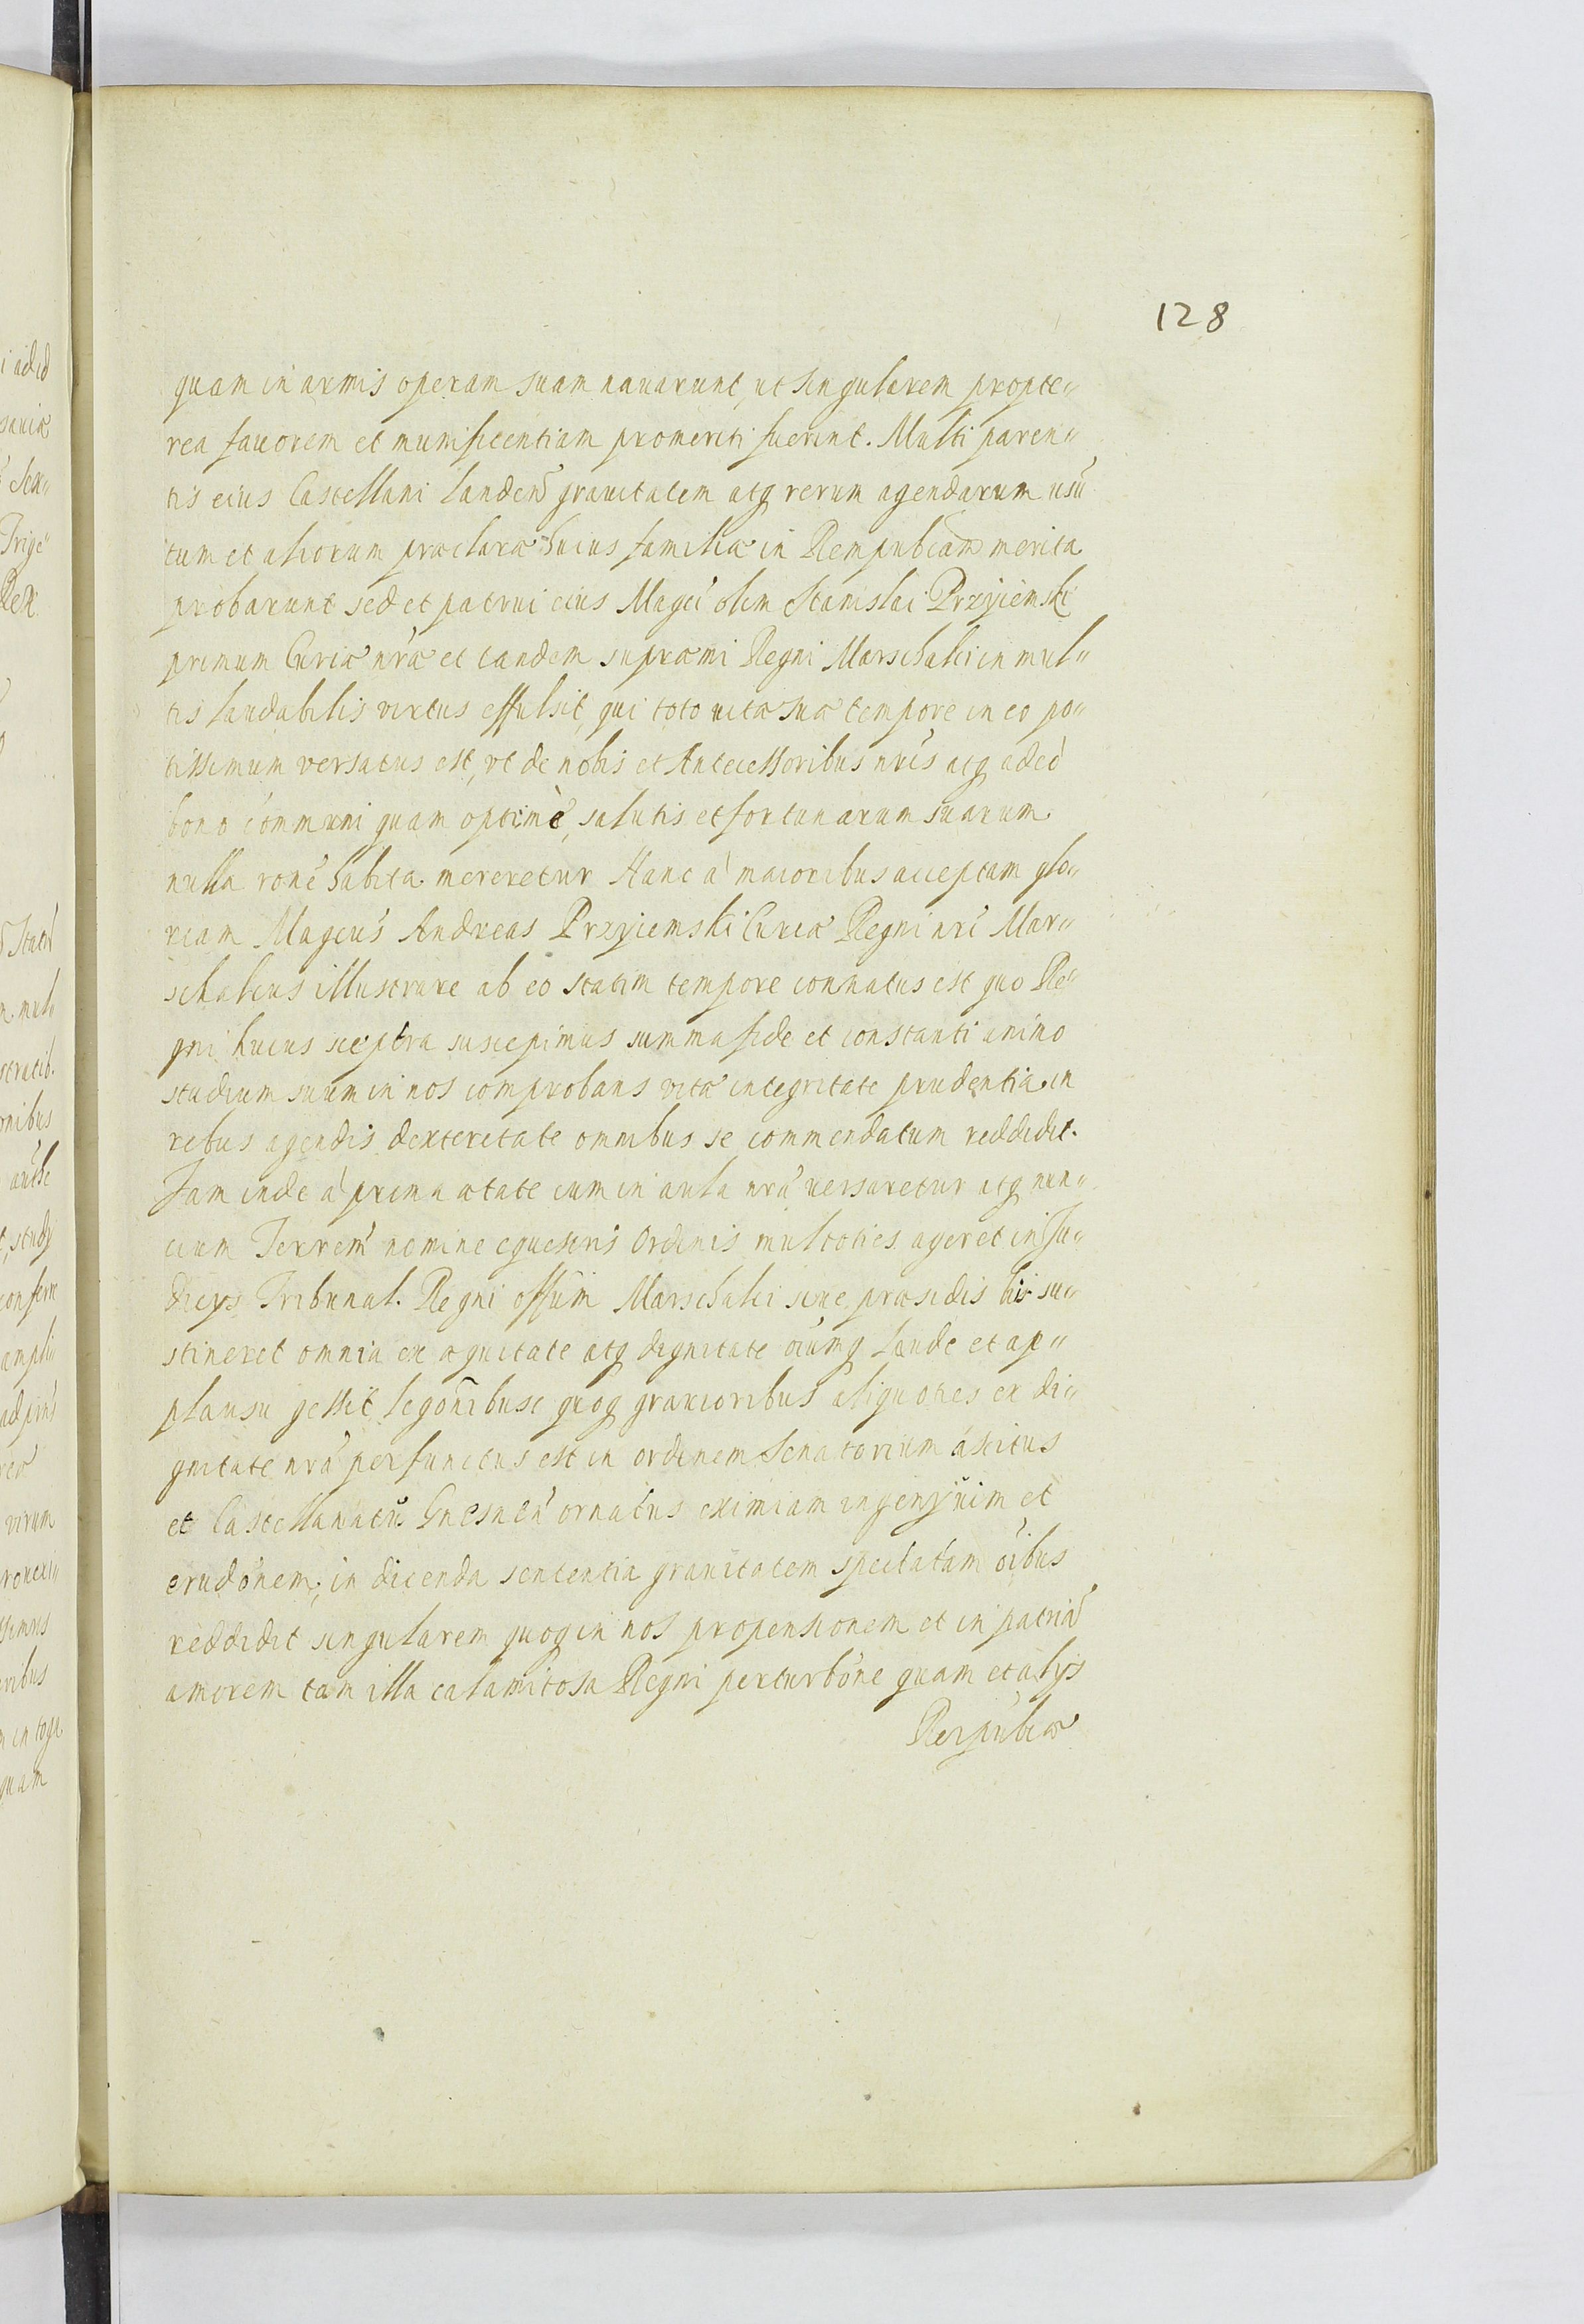 128
quam in armis operam suam nauarunt, ut singularem propte„
rea fauorem et munificentiam promeriti fuerint. Multi paren„
tis eius Castellani Landeñ grauitatem atq rerum agendarum usũ
tum et aliorum præclara huius familiæ in Rempublicam merita
probarunt sed et patrui eius Magci olim Stanislai Przyiemski
primum Curiæ nræ et tandem supræmi Regni Marschalci in mul„
tis laudabilis virtus effulsit, qui toto uitæ suæ tempore in eo po„
tissimum versatus est, vt de nobis et Antecessoribus nris atq adeò
bono communi quam optimè, salutis et fortunarum suarum
nulla rone habita mereretur Hanc à maioribus acceptam glo„
riam Magcus Andreas Przyiemski Curiæ Regni nri Mar„
schalcus illustrare ab eo statim tempore connatus est quo Re„
gni huius sceptra suscepimus summa fide et constanti animo
studium suum in nos comprobans vitæ integritate prudentia in
rebus agendis dexteritate omnibus se commendatum reddidit.
Iam inde à prima ætate cum in aula nra uersaretur atq nun„
cium Terrem nomine equestris Ordinis multoties ageret in Iu„
dicys Tribunal. Regni offum Marschalci siue præsidis bis su„
stineret omnia ex æquitate atq dignitate oiumq laude et ap„
plausu gessit legonibus quoq grauioribus aliquoties ex di„
gnitate nra perfunctus est in ordinem Senatorium ascitus
et Castellanatu Gnesneñ ornatus eximiam ingenÿ uim et
erudonem, in dicenda sententia grauitatem spectatam oibus
reddidit singularem quoq in nos propensionem et in patriã
amorem tam illa calamitosa Regni perturbone quam et alys
Reipublicæ